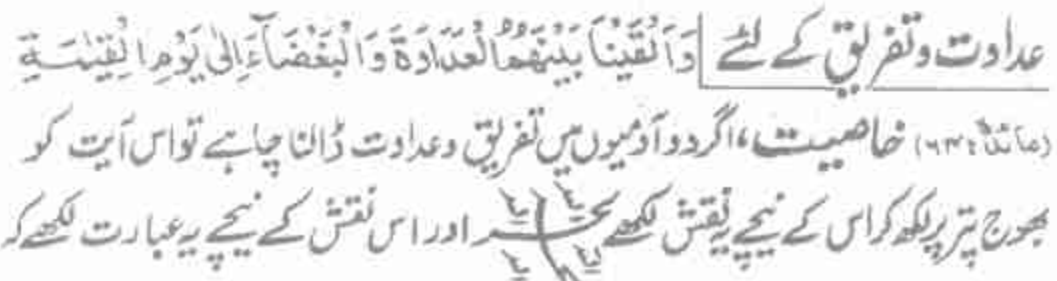 عداوت وتفریق کے لئے وَاَلْقَیْنَا بَیْنَھُمُ الْعَدَاوَةَ وَالْبَغْضَآءَ اِلٰی یَوْمِ الْقِیٰمَةِ
(مائدہ: ۶۴) خاصیت، اگر دو آدمیوں میں تفریق وعداوت ڈالنا چاہے تو اس آیت کو
بھوج پتر پر لکھ کر اس کے نیچے یہ نقش لکھے اور اس نقش کے نیچے یہ عبارت لکھے کہ